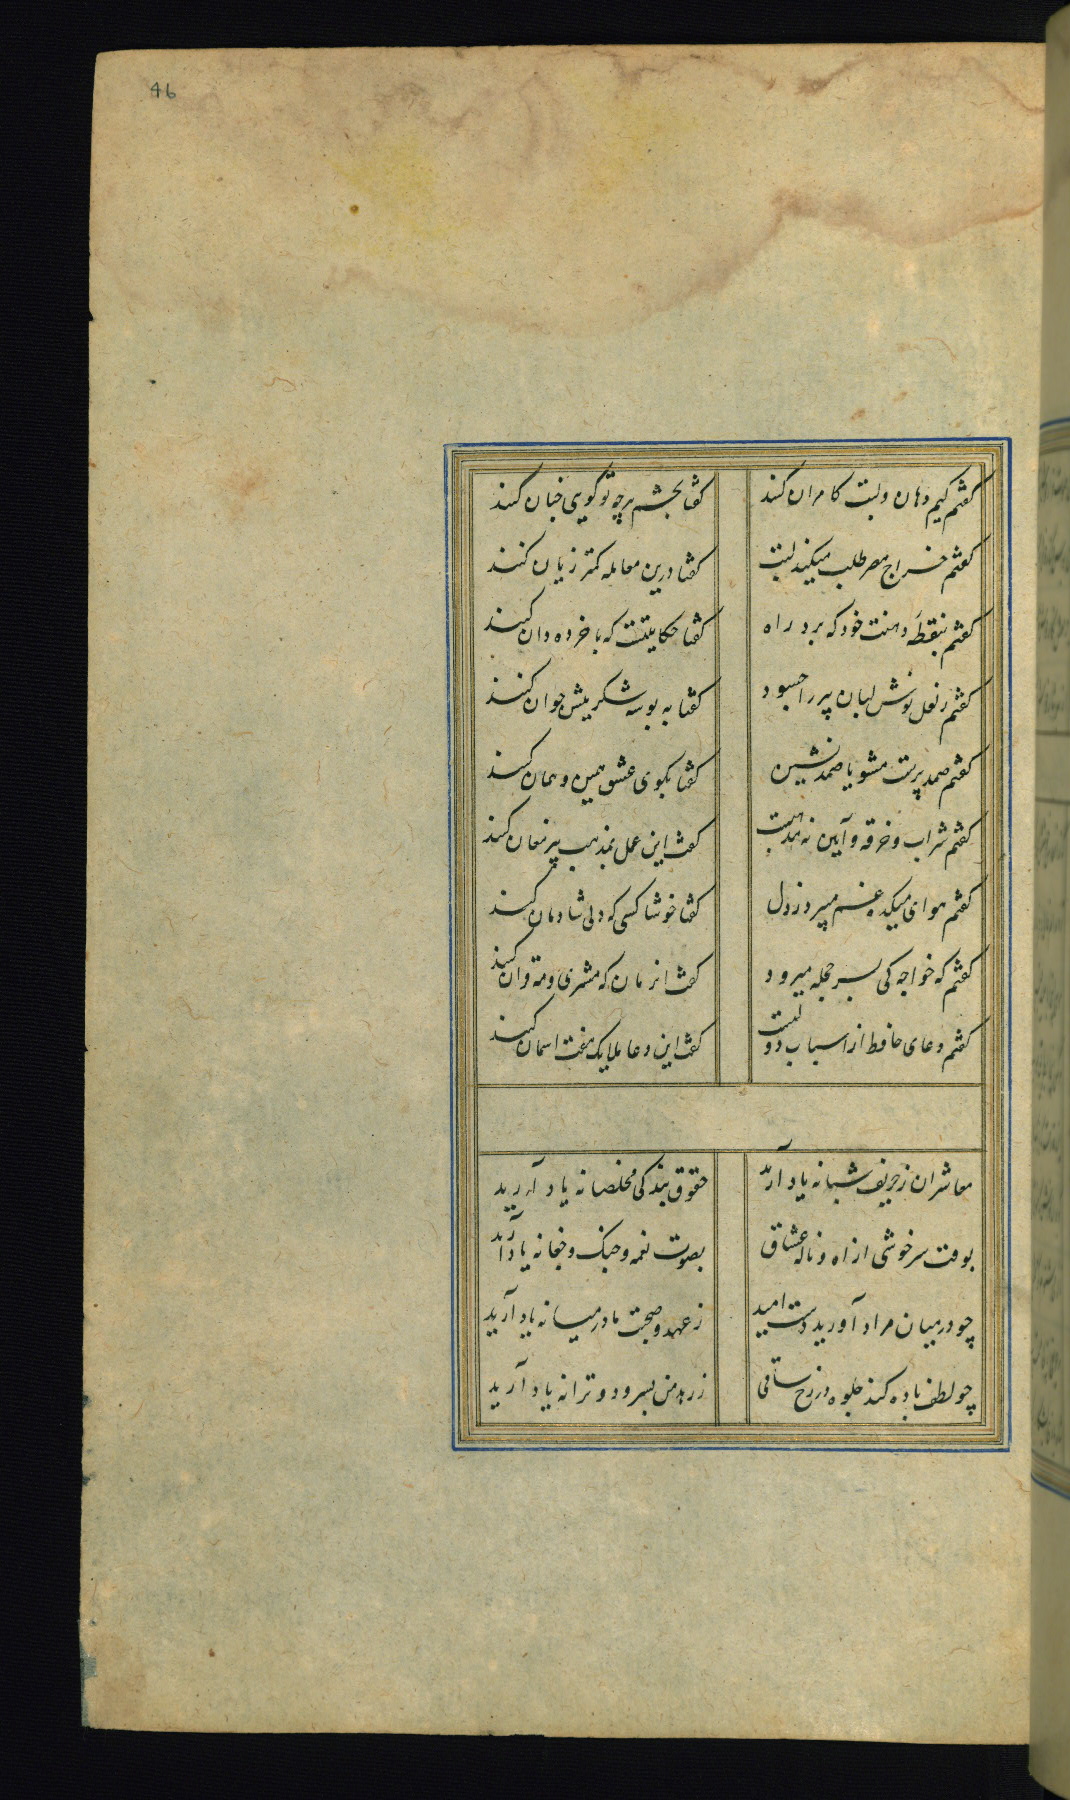 46
گفتم کیم دهان و لبت کامران کنند گفتا بچشم هرچه تو گویی چنان کنند
گفتم خراج مصر طلب میکند لبت گفتا درین معامله کمتر زیان کنند
گفتم بنقطه دهنت خود که برد راه گفتا حکایتست که با خرده دان کنند
گفتم ز لعل نوش لبان پیر را چسود گفتا به بوسه شکرینش جوان کنند
گفتم صمد پرست مشو با صمد نشین گفتا بکوی عشق همین و همان کنند
گفتم شراب و خرقه و آیین نه مذهبست گفت این عمل بمذهب پیر مغان کنند
گفتم هوای میکده غم میبرد ز دل گفتا خوشا کسی که دلی شادمان کنند
گفتم که خواجه کی بسر حجله میرود گفت انزمان که مشتری و مه قران کنند
گفتم دعای حافظ از اسباب دولتست گفت این دعا ملایک هفت اسمان کنند
معاشران ز حریف شبانه یاد آرید حقوق بندگی مخلصانه یاد آرید
بوقت سرخوشی از اه و ناله عشاق بصوت نغمه و چنگ و چغانه یاد آرید
چو در میان مراد آورید دست امید ز عهد و صحبت ما در میانه یاد آرید
چو لطف باده کند جلوه در رخ ساقی ز من بسرود و ترانه یاد آرید